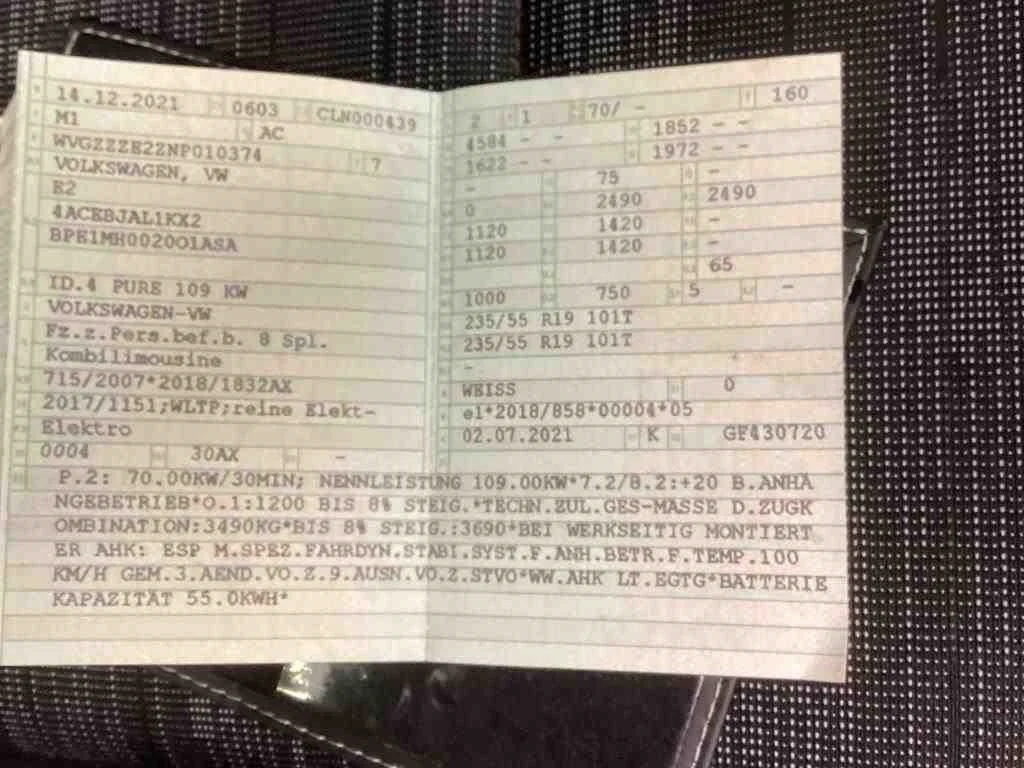 14.12.2021 0603 CLN000439
M1 AC
WVGZZZE2ZNP010374 7
VOLKSWAGEN, VW
E2
4ACEBJAL1KX2
BPE1MH002001ASA
ID.4 PURE 109 KW
VOLKSWAGEN-VW
Fz.z.Pers.bef.b. 8 Spl.
Kombilimousine
715/2007*2018/1832AX
2017/1151;WLTP;reine Elekt-
Elektro
0004 30AX -
2 1 70/ - 160
4584 - - 1852 - -
1622 - - 1972 - -
- 75 -
0 2490 2490
1120 1420 -
1120 1420 -
65
1000 750 5 -
235/55 R19 101T
235/55 R19 101T
-
WEISS 0
e1*2018/858*00004*05
02.07.2021 K GF430720
P.2: 70.00KW/30MIN; NENNLEISTUNG 109.00KW*7.2/8.2:+20 B.ANHÄ
NGEBETRIEB*O.1:1200 BIS 8% STEIG.*TECHN.ZUL.GES-MASSE D.ZUGK
OMBINATION:3490KG*BIS 8% STEIG.:3690*BEI WERKSEITIG MONTIERT
ER AHK: ESP M.SPEZ.FAHRDYN.STABI.SYST.F.ANH.BETR.F.TEMP.100
KM/H GEM.3.AEND.VO.Z.9.AUSN.VO.Z.STVO*WW.AHK LT.EGTG*BATTERIE
KAPAZITÄT 55.0KWH*